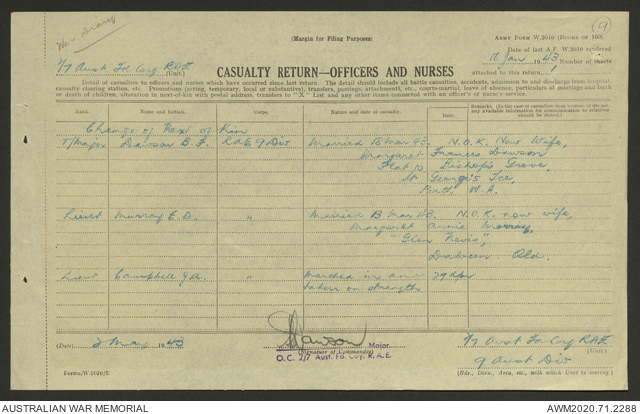 War Diary
9
(Margin for Filing Purposes)
ARMY FORM W.3010 (BOOKS OF 100)
Date of last A.F. W.3010 rendered
18 Jan 1943 Number of sheets
attached to this return
2/7 Aust Fd Coy RAE (Unit.)
CASUALTY RETURN—OFFICERS AND NURSES
Detail of casualties to officers and nurses which have occurred since last return. The detail should include all battle casualties, accidents, admission to and discharge from hospital,
casualty clearing station, etc. Promotions (acting, temporary, local or substantive), transfers, postings, attachments, etc., courts-martial, leave of absence, particulars of marriage and birth
or death of children, alteration in next-of-kin with postal address, transfers to "X" List and any other items connected with an officer's or nurse's service.
Rank. Name and Initial. Corps. Nature and date of casualty. Remarks
Change of Next of Kin
T/Major Dawson B. F. RAE 9 Div Married 13 Mar 43. N.O.K. Now Wife,
Margaret Frances Dawson
Flat 10 Bishop's Grove,
St George's Tce,
Perth W.A.
Lieut Murray E.D. " Married 13 Mar 43. N.O.K. now wife,
Margaret Annie Murray,
"Glen Nevis",
Qld.
Lieut Campbell J.A. " Marched in and 29 Apr
taken on strength
(Date) 2 May 1943
Dawson Major
(Signature of Commander)
O.C. 2/7 Aust. Fd. Coy. R.A.E.
2/7 Aust Fd Coy RAE
(Unit.)
9 Aust Div
(Bde., Divn., Area, etc., with which Unit is serving.)
Forms/W.3010/2
AUSTRALIAN WAR MEMORIAL
AWM2020.71.2288